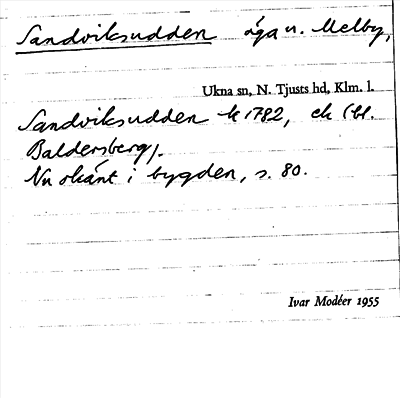 Sandviksudden äga u. Melby,
Ukna sn, N. Tjusts hd, Klm. l.
Sandviksudden k 1782, ek (bl.
Baldersberg).
Nu okänt i bygden, s. 80.
Ivar Modéer 1955